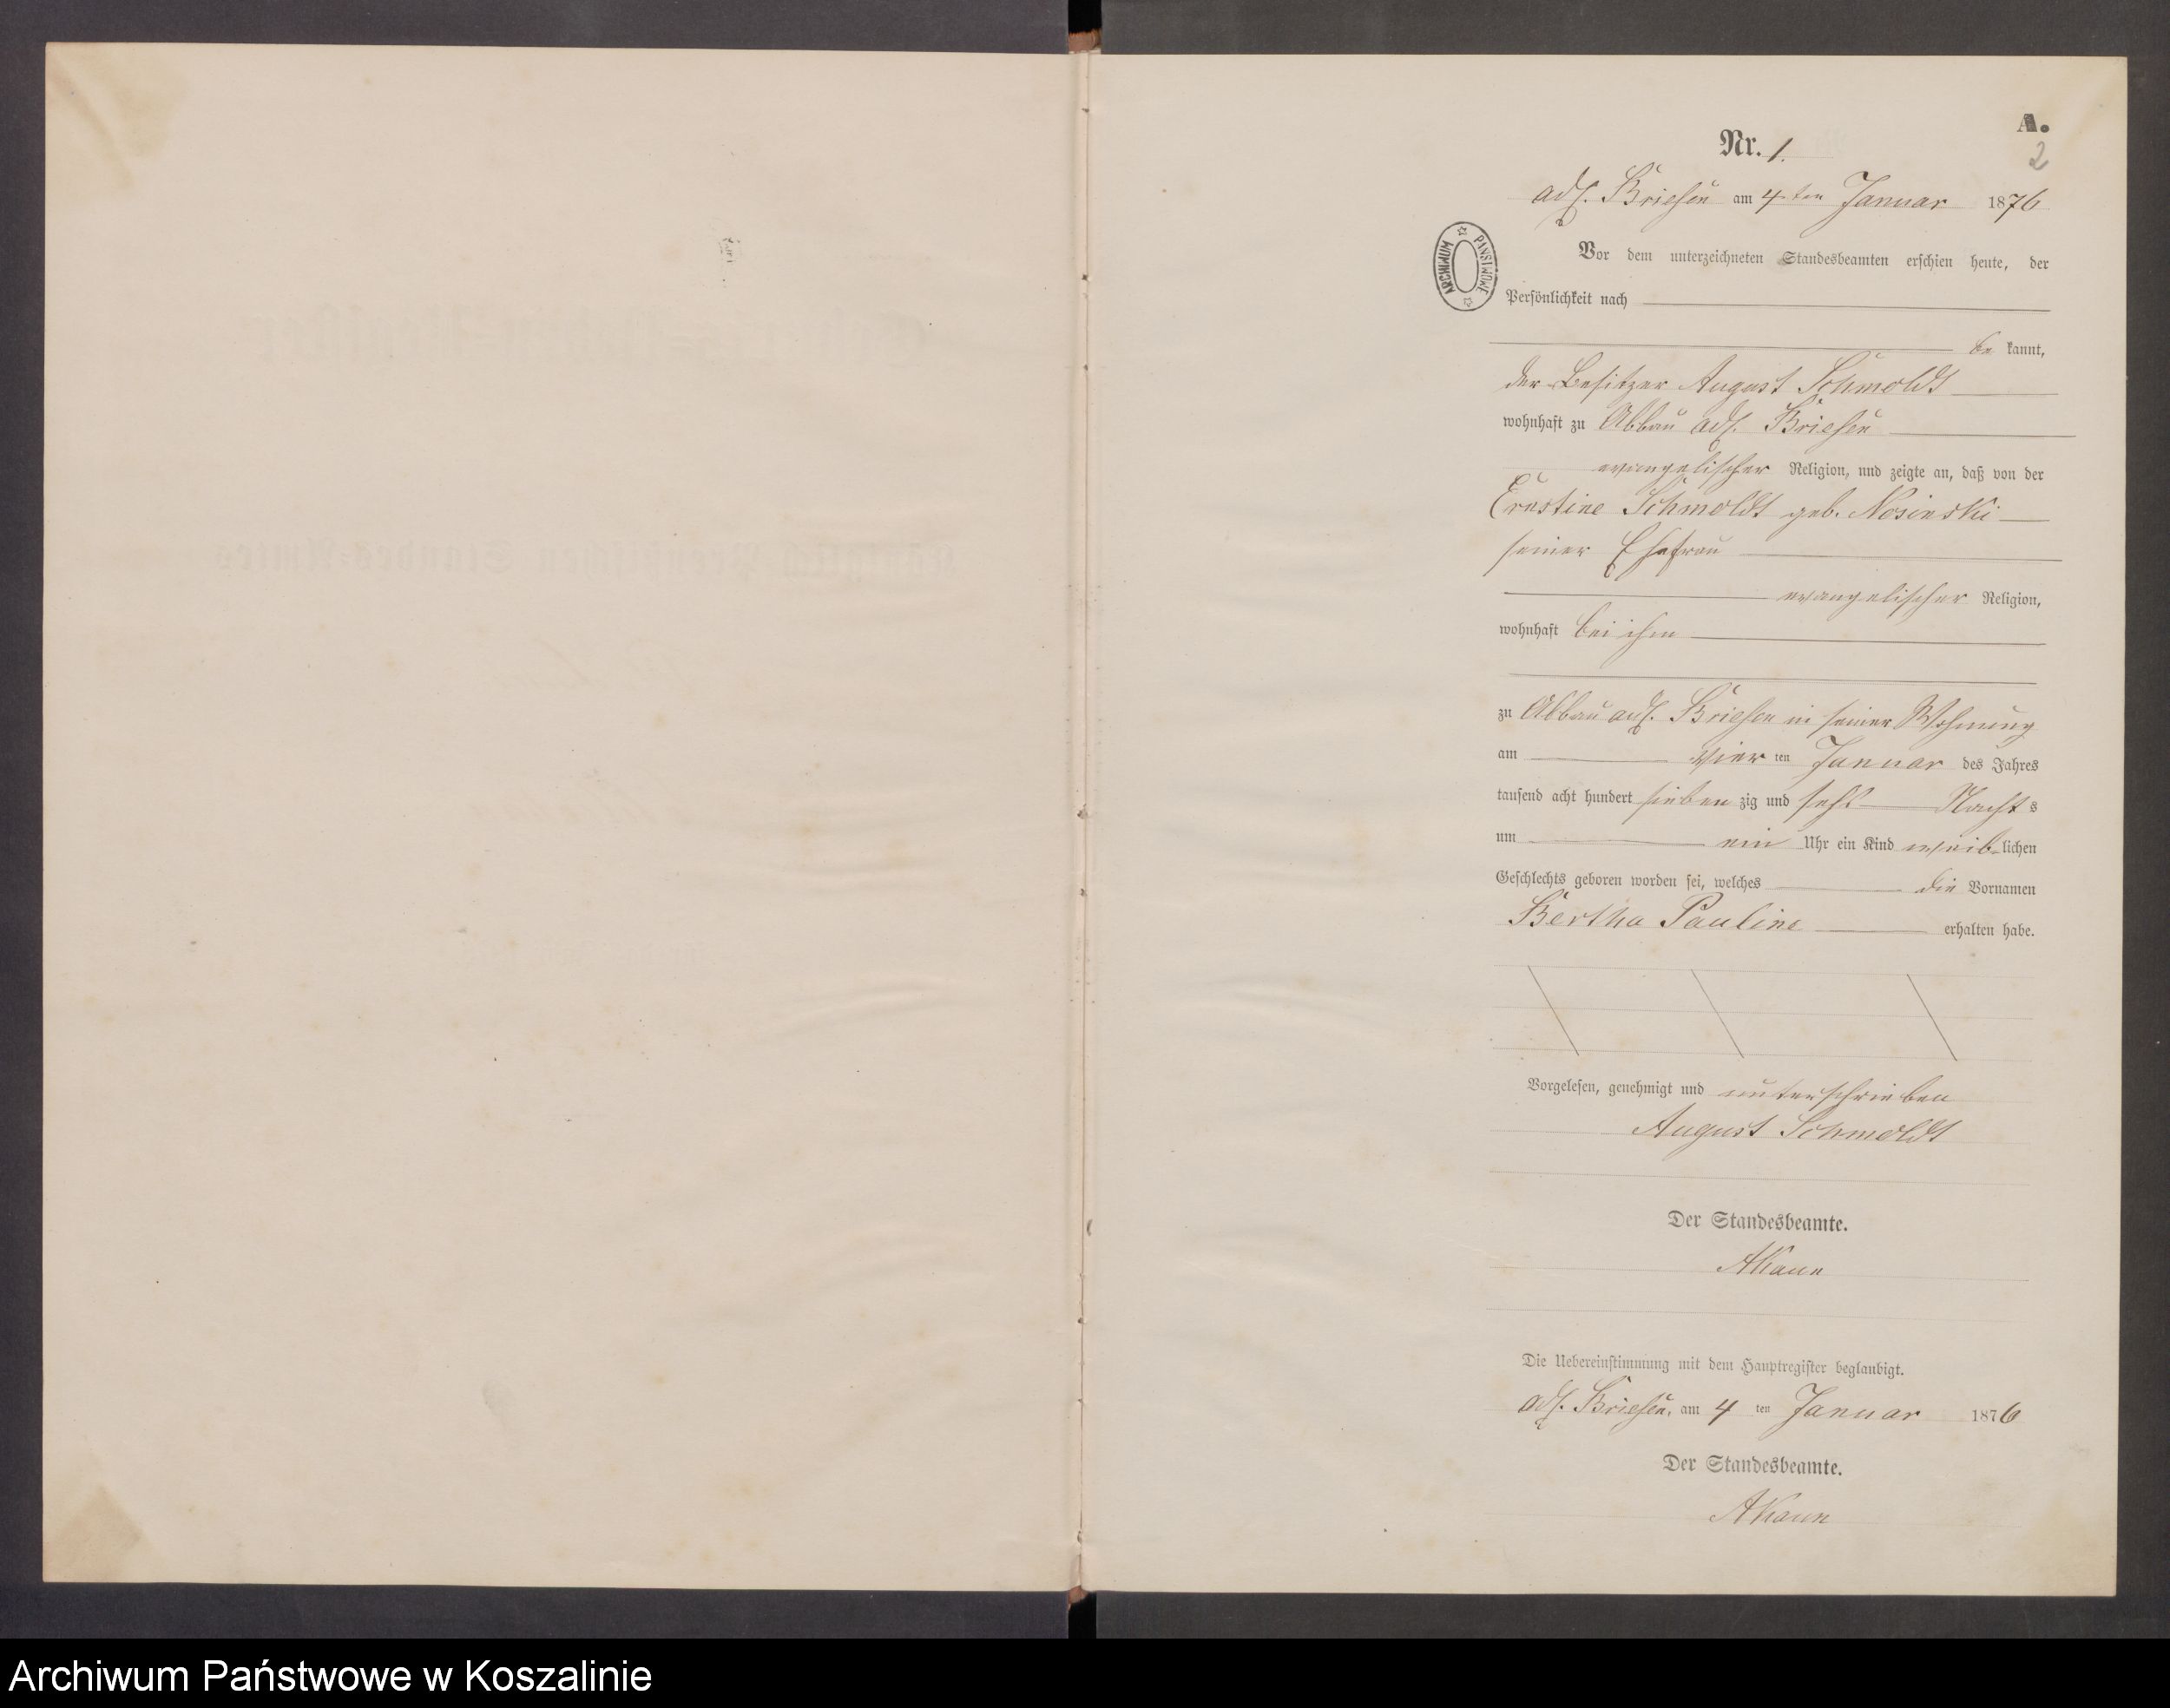 A.
Nr. 1.
2
adl. Briesen am 4ten Januar 1876
Vor dem unterzeichneten Standesbeamten erschien heute, der
ARCHIWUM PAŃSTWOWE
Persönlichkeit nach
be kannt,
der Besitzer August Schmoldt
wohnhaft zu Abbau adl. Briesen
evangelischer Religion, und zeigte an, daß von der
Ernstine Schmoldt geb. Nosinski
seiner Ehefrau
evangelischer Religion,
wohnhaft bei ihm
zu Abbau adl. Briesen in seiner Wohnung
am vier ten Januar des Jahres
tausend acht hundert sieben zig und sechs Nacht s
um ein Uhr ein Kind weib lichen
Geschlechts geboren worden sei, welches die Vornamen
Bertha Pauline erhalten habe.
Vorgelesen, genehmigt und unterschrieben
August Schmoldt
Der Standesbeamte.
Die Uebereinstimmung mit dem Hauptregister beglaubigt.
adl. Briesen, am 4 ten Januar 1876
Der Standesbeamte.
Archiwum Państwowe w Koszalinie